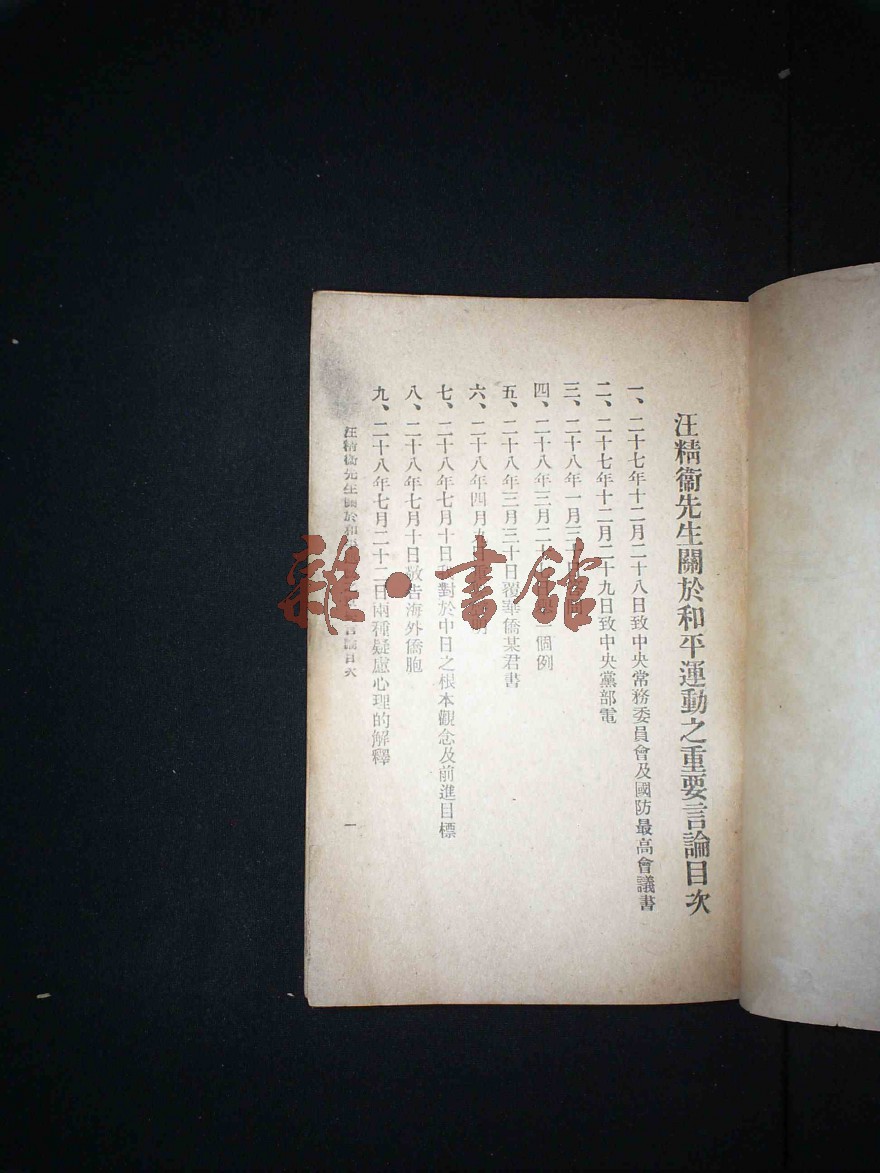 汪精衞先生關於和平運動之重要言論目次
一、二十七年十二月二十八日致中央常務委員會及國防最高會議書
二、二十七年十二月二十九日致中央黨部電
三、二十八年一月三十日
四、二十八年三月二十 一個例
五、二十八年三月三十日覆華僑某君書
六、二十八年四月九日 明
七、二十八年七月十日我對於中日之根本觀念及前進目標
八、二十八年七月十日敬告海外僑胞
九、二十八年七月二十二日兩種疑慮心理的解釋
汪精衞先生關於和 言論目次
一
雜·書館